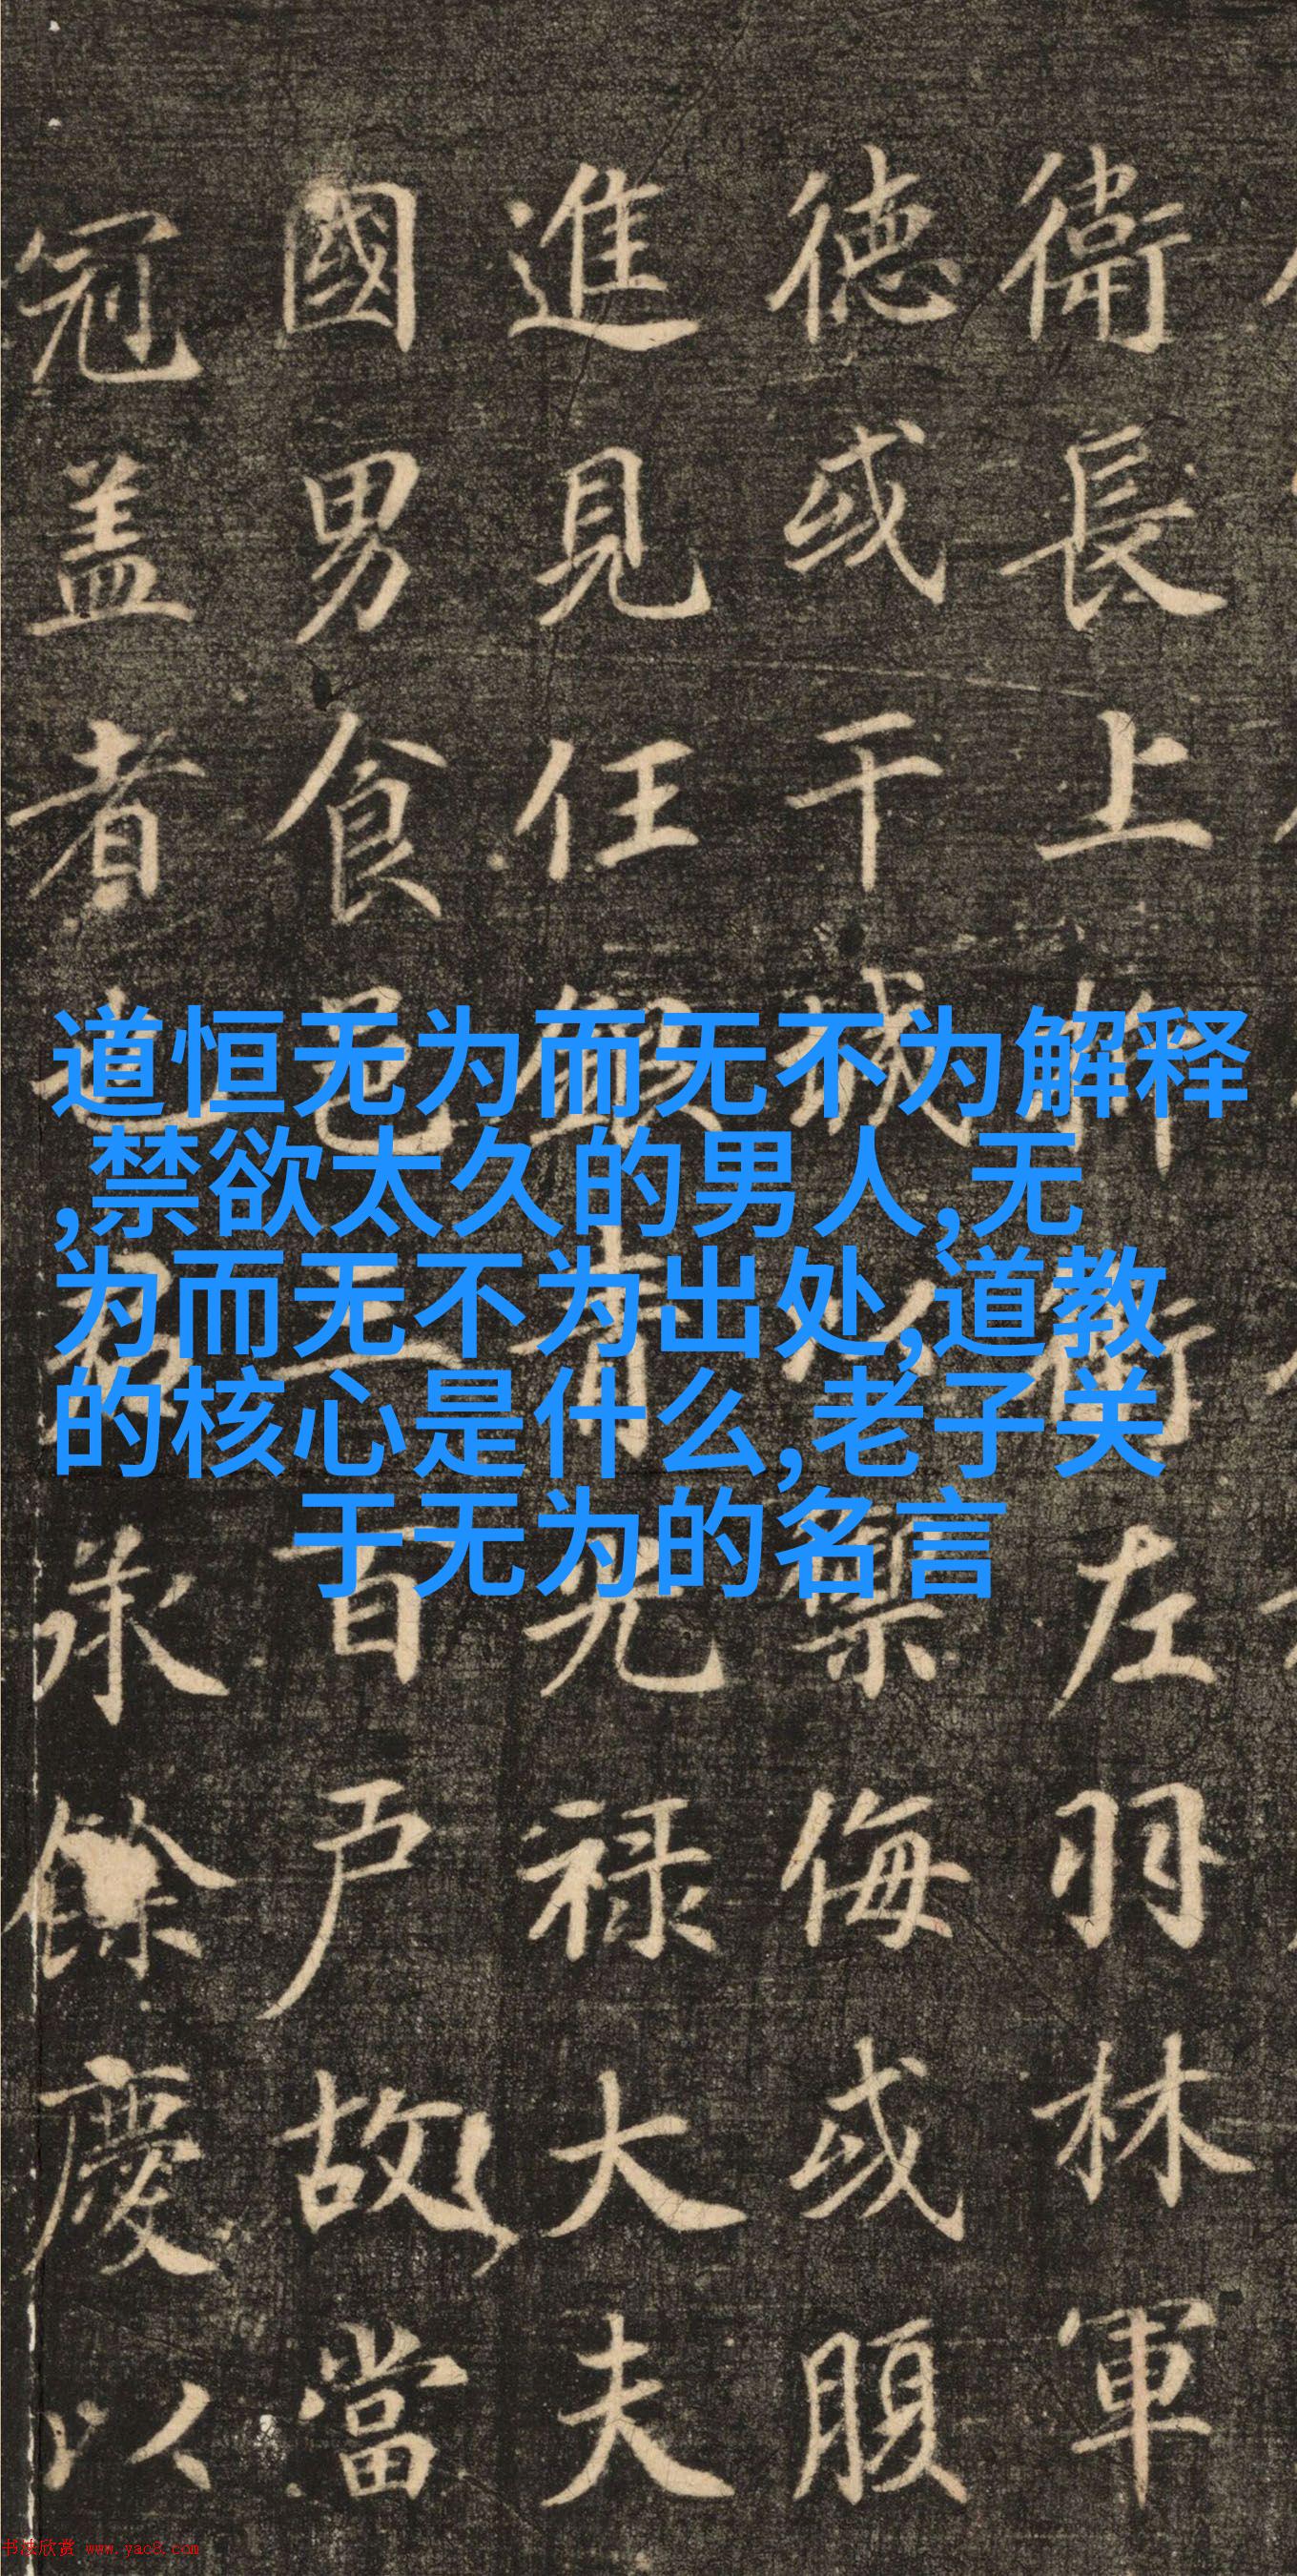 衛長上折衝左羽林軍
德或干城以禦侮或腹
進見任銀青光禄大夫
國男食邑三百户故當
冠盖者承餘慶以
道恒无为而无不为解释
,禁欲太久的男人,无
为而无不为出处,道教
的核心是什么,老子关
于无为的名言
书法欣赏 www.yac8.com